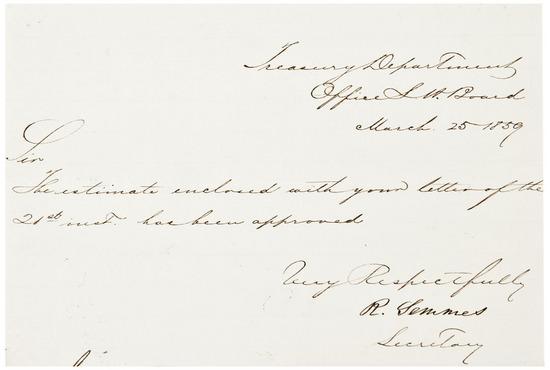 Treasury Department
Office L. H. Board
March 25 1859
Sir
The estimate enclosed with your letter of the
21st inst. has been approved
Very Respectfully
R. Semmes
Secretary